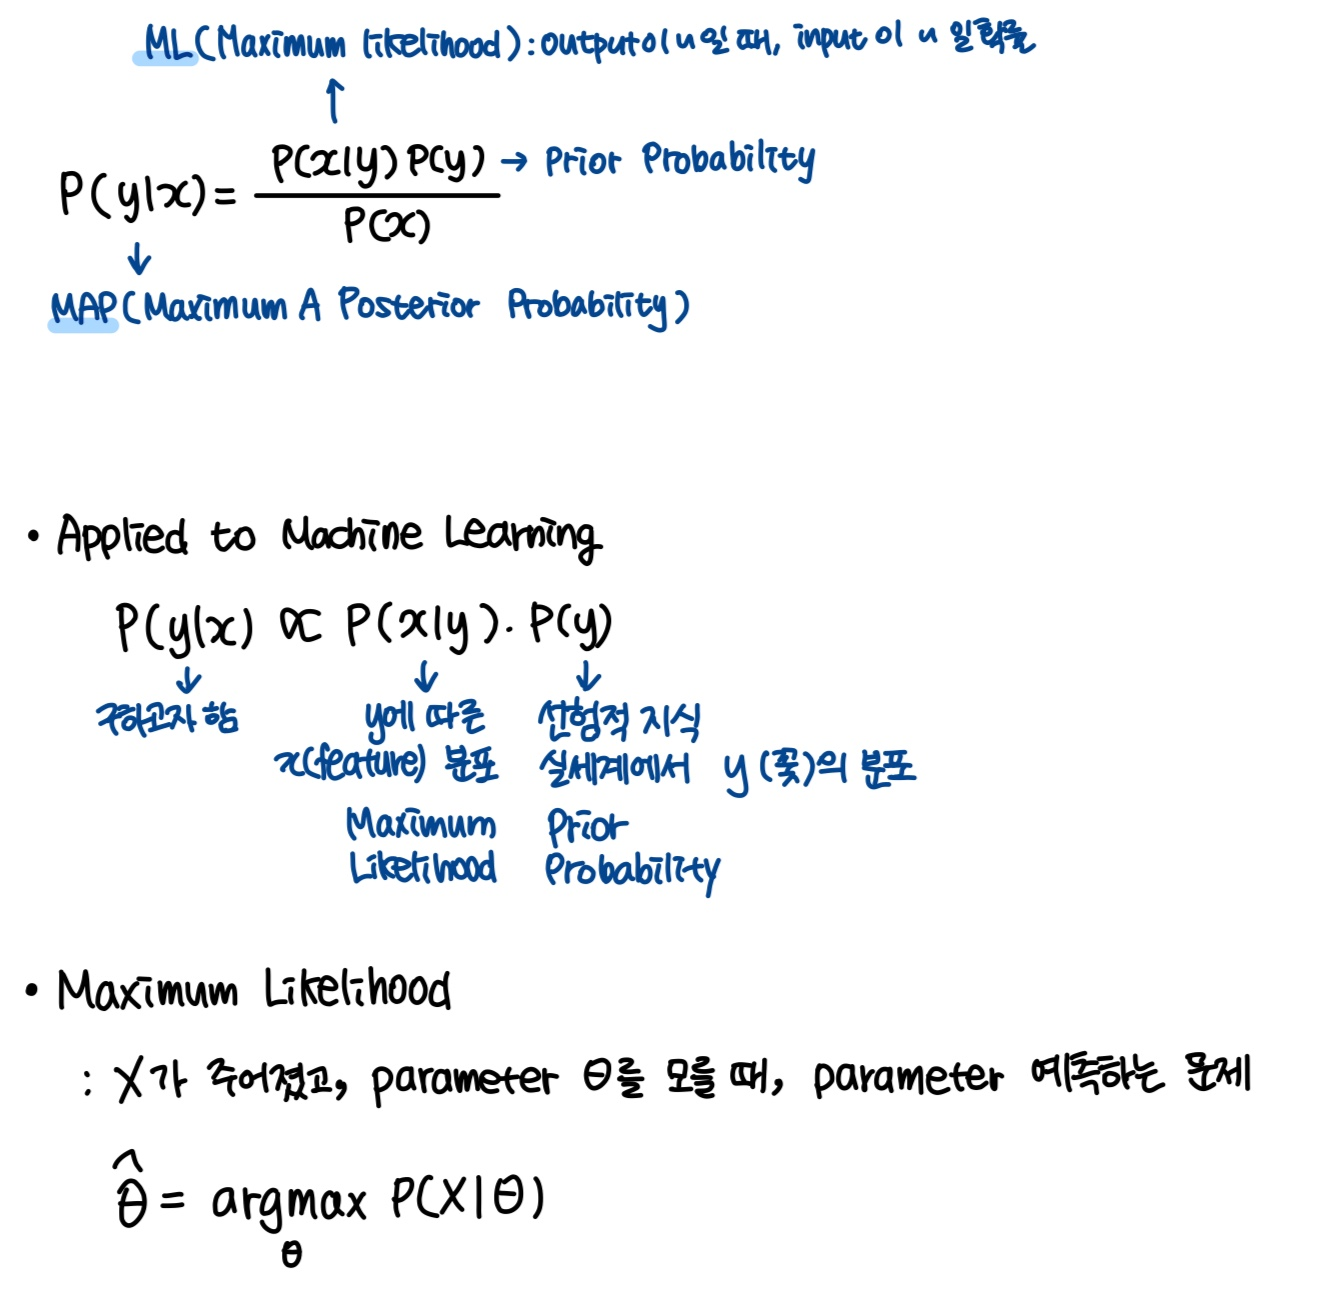 ML(Maximum likelihood) : output이 ~일 때, input이 ~일 확률
↑
P(y|x) = P(x|y) P(y) / P(x) → Prior Probability
↓
MAP(Maximum A Posterior Probability)
• Applied to Machine Learning
P(y|x) ∝ P(x|y) · P(y)
↓ ↓ ↓
구하고자 함 y에 따른 선험적 지식
x(feature) 분포 실세계에서 y (꽃)의 분포
Maximum Prior
Likelihood Probability
• Maximum Likelihood
: X가 주어졌고, parameter θ를 모를 때, parameter 예측하는 문제
θ̂ = argmax P(X|θ)
θ